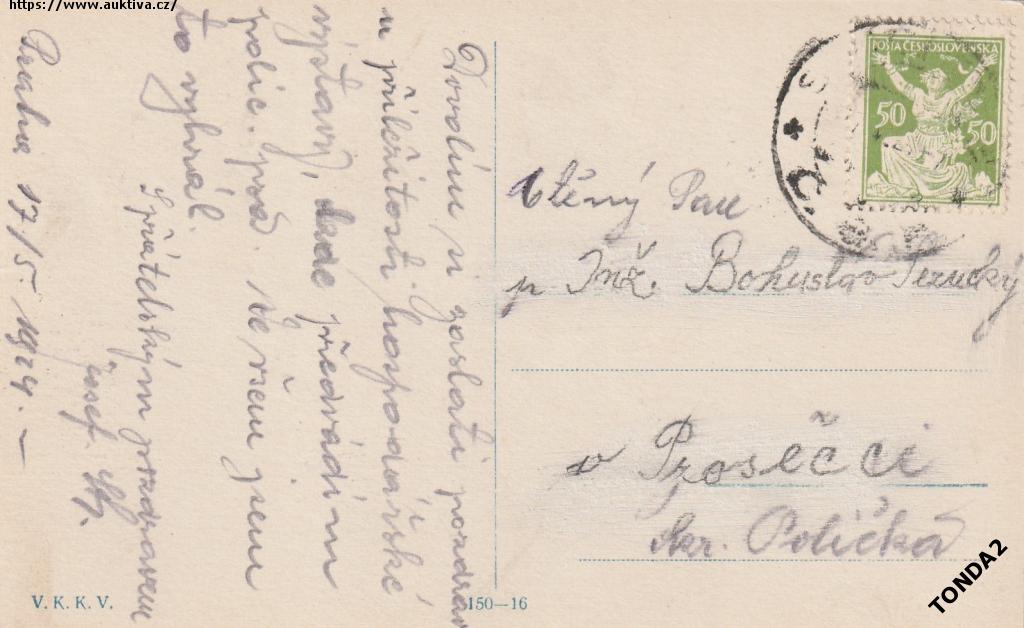 https://www.auktiva.cz/
Dovolím si zaslati pozdrav
u příležitosti hospodářské
výstavy, kde předvádím
polic. psa. Ve všem jsem
to vyhrál.
S přátelským pozdravem
Josef
Praha 17/5. 1924. —
POŠTA ČESKOSLOVENSKÁ
50 50
Ctěný Pan
p Inž. Bohuslav
v Prosečči
okr. Polička
V. K. K. V.
150—16
TONDA2